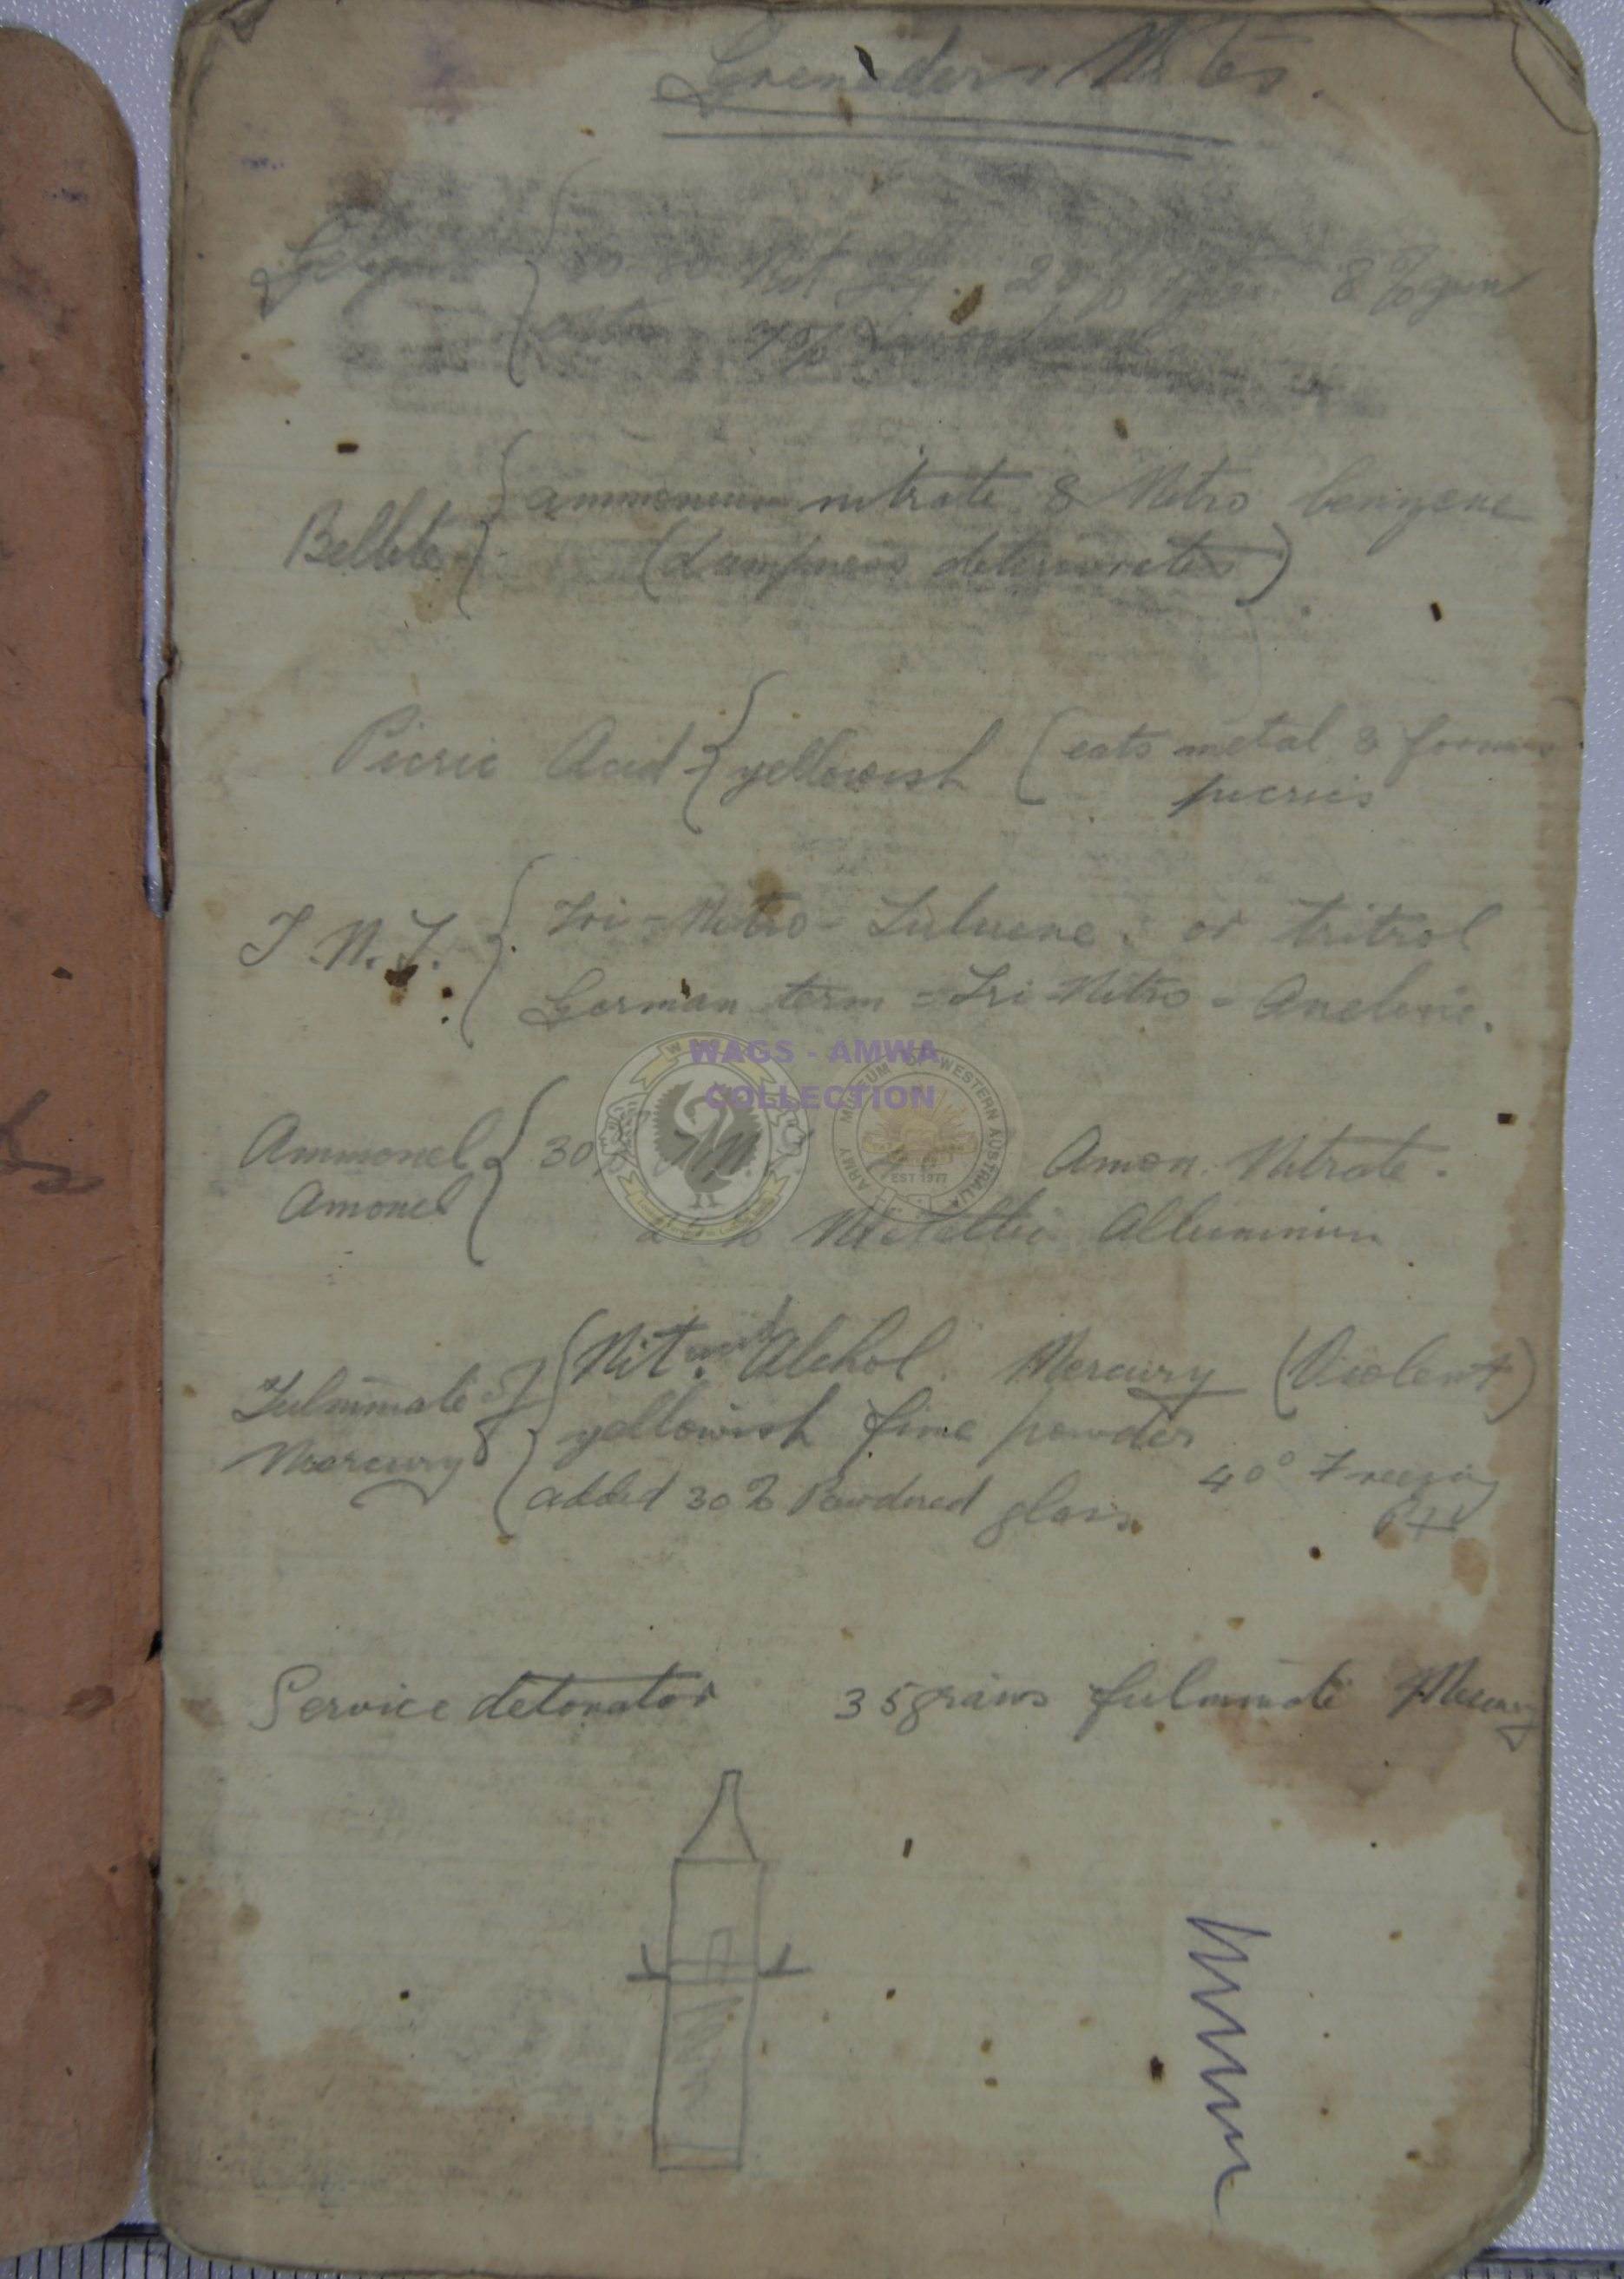 Grenadiers Notes.
Nit Gly. 8% gun
ammonium nitrate & Nitro benzene
Bellite
(dampness deteriorates)
Picric Acid yellowish (eats metal & forms
picrics
T.N.T. Tri-Nitro-Tuluene. or tritrol
German term = Tri-Nitro-Aneline.
WAGS - AMWA
COLLECTION
Ammonel 30 Amon. Nitrate.
Amonel
Metallic Alluminium
EST 1977
ARMY MUSEUM OF WESTERN AUSTRALIA
Nit. Alchol Mercury (Violent)
Fulminate of
yellowish fine powder
Mercury
added 30% Powdered glass 40° Freezing
Pt
Service detonator 35 grains fulminate Mercury